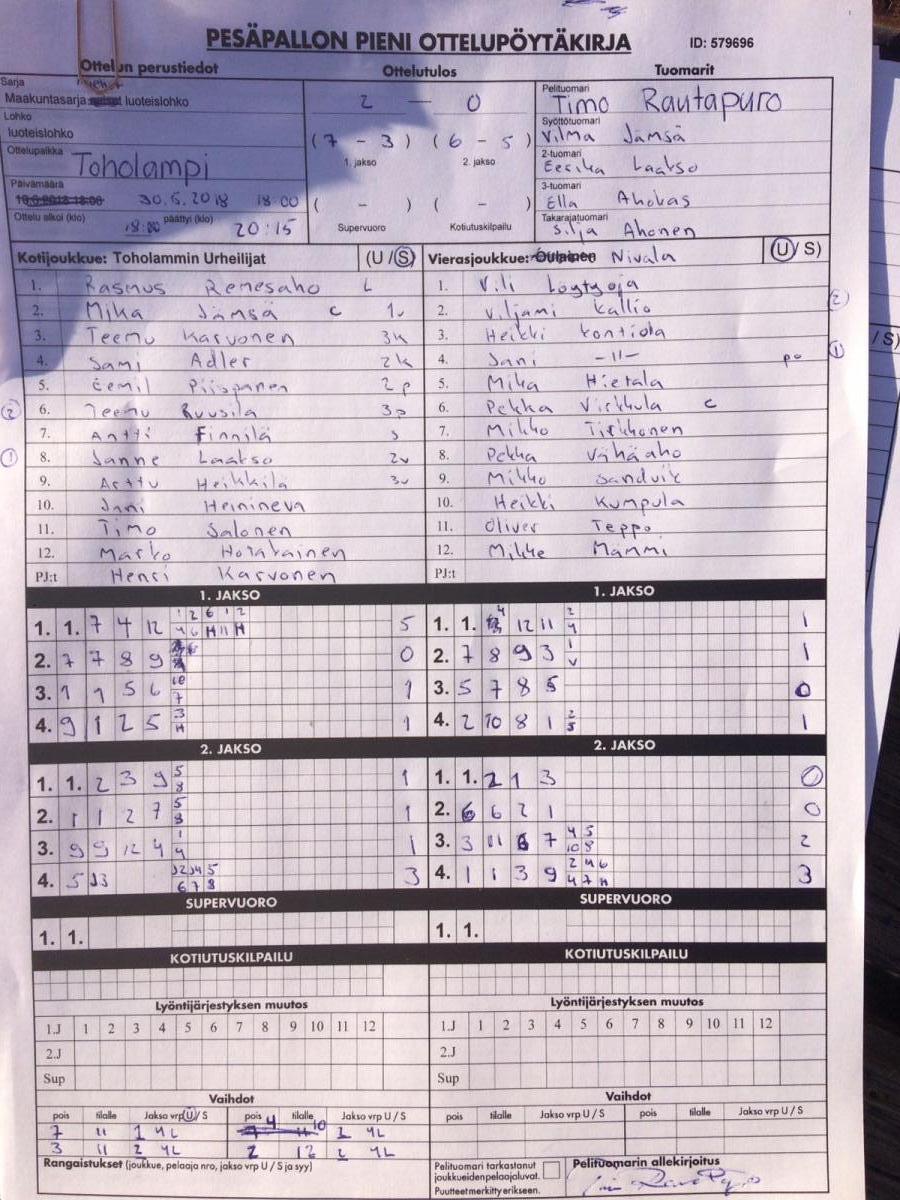 PESÄPALLON PIENI OTTELUPÖYTÄKIRJA ID: 579696
Ottelun perustiedot Ottelutulos Tuomarit
Sarja
Maakuntasarja luoteislohko
Lohko
luoteislohko
Ottelupaikka
Toholampi
Päivämäärä
30.5.2018 18:00
Ottelu alkoi (klo) päättyi (klo)
18:00 20:15
2 — 0
(7 – 3) (6 – 5)
1. jakso 2. jakso
( – ) ( – )
Supervuoro Kotiutuskilpailu
Pelituomari
Timo Rautapuro
Syöttötuomari
Vilma Jämsä
2-tuomari
Eerika Laakso
3-tuomari
Ella Ahokas
Takarajatuomari
Silja Ahonen
Kotijoukkue: Toholammin Urheilijat (U / S)
1. Rasmus Renesaho L
2. Mika Jämsä C 1v
3. Teemu Karvonen 3k
4. Sami Adler 2k
5. Eemil Piispanen 2p
6. Teemu Ruusila 3p
7. Antti Finnilä s
8. Janne Laakso 2v
9. Arttu Heikkilä 3v
10. Jani Heinineva
11. Timo Salonen
12. Marko
PJ:t Henri Karvonen
Vierasjoukkue: Oulainen Nivala (U / S)
1. Vili Löytynoja
2. Viljami Kallio
3. Heikki Kontiola
4. Jani -11- po
5. Mika Hietala
6. Pekka Virkkula C
7. Mikko Tirkkonen
8. Pekka Vähäaho
9. Mikko Sandvik
10. Heikki Kumpula
11. Oliver Teppo
12. Mikke Mämmi
PJ:t
1. JAKSO
1. 1. 7 4 12 5
2. 7 7 8 9 0
3. 1 1 5 6 1
4. 9 1 2 5 1
1. JAKSO
1. 1. 12 11 1
2. 7 8 9 3 1
3. 5 7 8 5 0
4. 2 10 8 1 1
2. JAKSO
1. 1. 2 3 9 5 8 1
2. 1 1 2 7 5 8 1
3. 9 9 12 4 1 4 1
4. 5 3
2. JAKSO
1. 1. 2 1 3 0
2. 6 6 2 1 0
3. 3 11 6 7 4 5 10 8 2
4. 1 1 3 9 3
SUPERVUORO
1. 1.
SUPERVUORO
1. 1.
KOTIUTUSKILPAILU
KOTIUTUSKILPAILU
Lyöntijärjestyksen muutos
1.J 1 2 3 4 5 6 7 8 9 10 11 12
2.J
Sup
Lyöntijärjestyksen muutos
1.J 1 2 3 4 5 6 7 8 9 10 11 12
2.J
Sup
Vaihdot
pois tilalle Jakso vrp U / S pois tilalle Jakso vrp U / S
7 11 1 4L 4 10 2 4L
3 11 2 4L 2 12 2 4L
Vaihdot
pois tilalle Jakso vrp U / S pois tilalle Jakso vrp U / S
Rangaistukset (joukkue, pelaaja nro, jakso vrp U / S ja syy)
Pelituomari tarkastanut
joukkueidenpelaajaluvat.
Puutteet merkitty erikseen.
Pelituomarin allekirjoitus